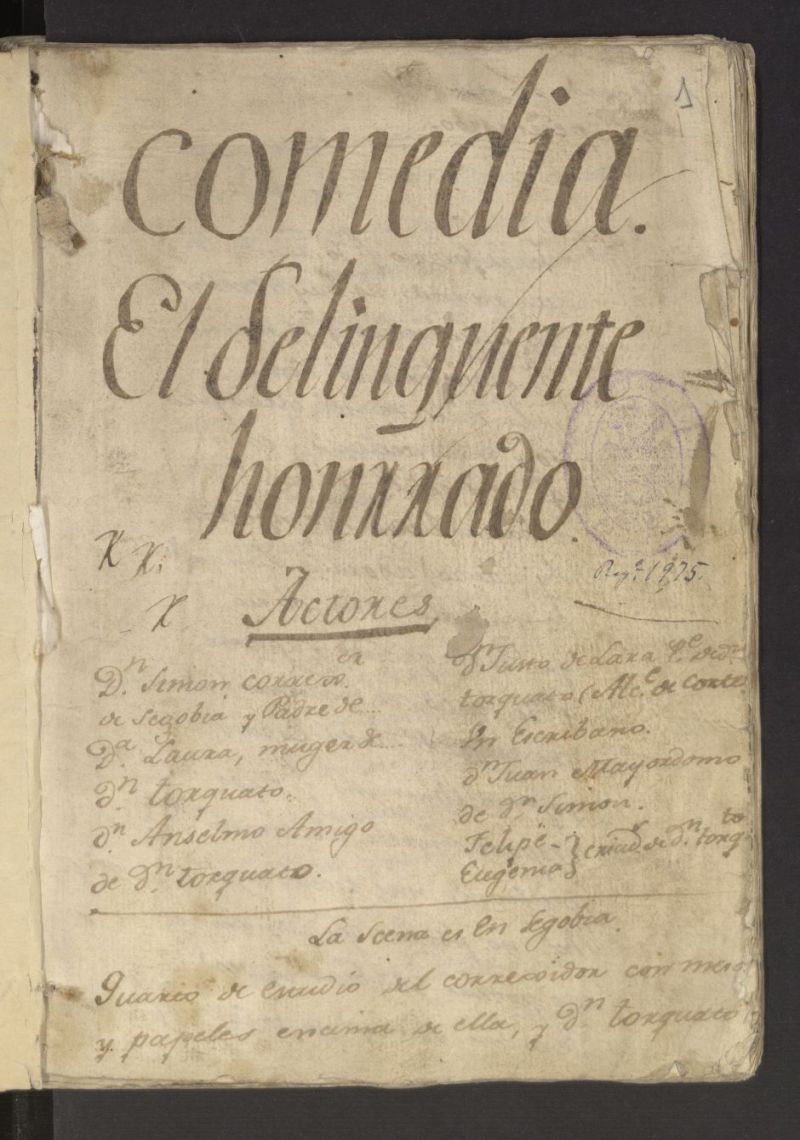 1
comedia.
El delinquente
honrrado.
Actores
D.n Simon correxor.
de Segobia y Padre de
D.a Laura, muger de
D.n torquato.
d.n Anselmo Amigo
de D.n torquato.
d.n Justo de Lara P.e de d.n
torquato (Alc.e de Corte
Un Escribano.
d.n Juan Mayordomo
de D.n Simon.
Felipe
Eugenia criad.s de D.n torq.to
La Scena es en Segobia.
Quarto de estudio del correxidor con mesa
y papeles encima de ella, y D.n torquato